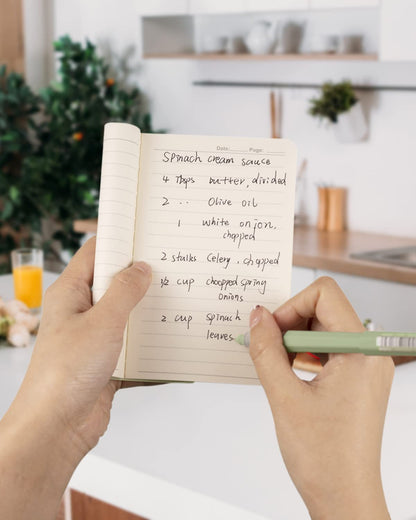 Date: Page:
Spinach cream sauce
4 Tbsps butter, divided
2 .. Olive oil
1 white onion,
chopped
2 stalks Celery, chopped
1/2 cup choopped spring
onions
2 cup spinach
leaves